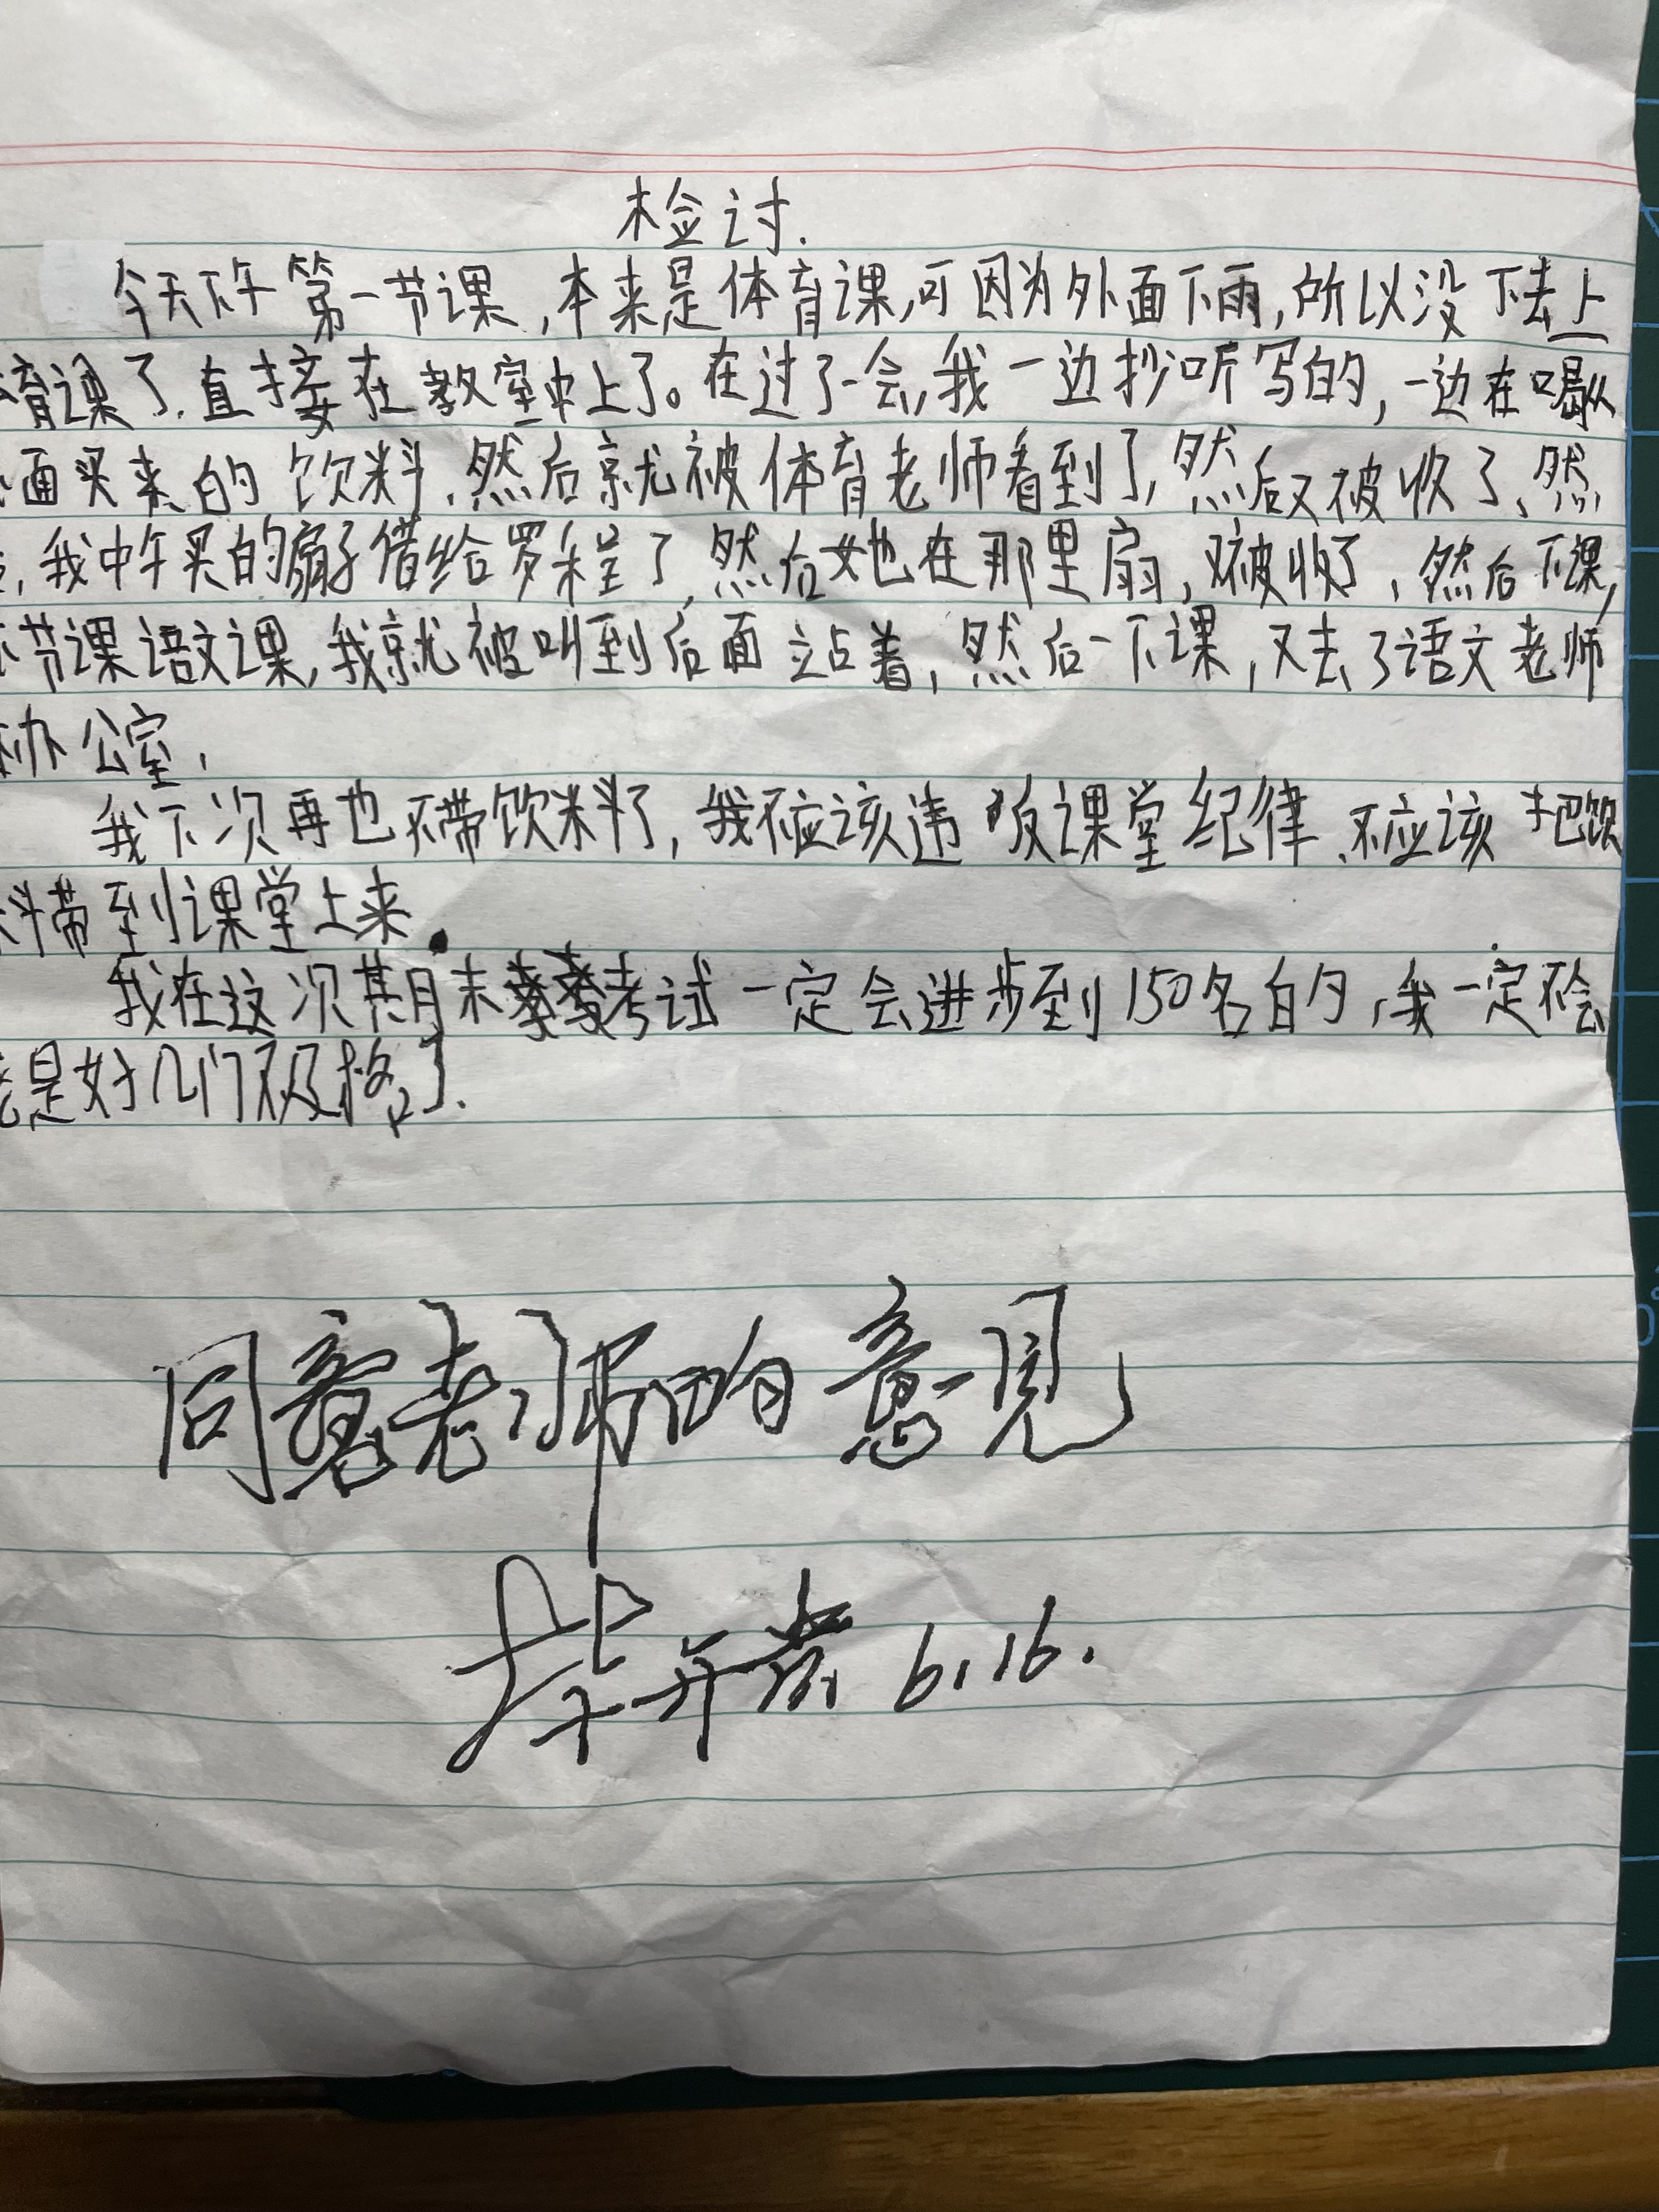 检讨.
今天下午第一节课,本来是体育课,可因为外面下雨,所以没下去上
育课了.直接在教室中上了。在过了一会,我一边抄听写的,一边在喝从
面买来的饮料.然后就被体育老师看到了,然后又被收了、然
,我中午买的扇子借给罗程了,然后她在那里扇,又被收了,然后下课,
节课语文课,我就被叫到后面站着,然后一下课,又去了语文老师
办公室,
我下次再也不带饮料了,我不应该违反课堂纪律.不应该把饮
料带到课堂上来.
我在这次期末考试一定会进步到150名的,我一定不会
是好几门不及格了.
同意老师的意见
6.16.